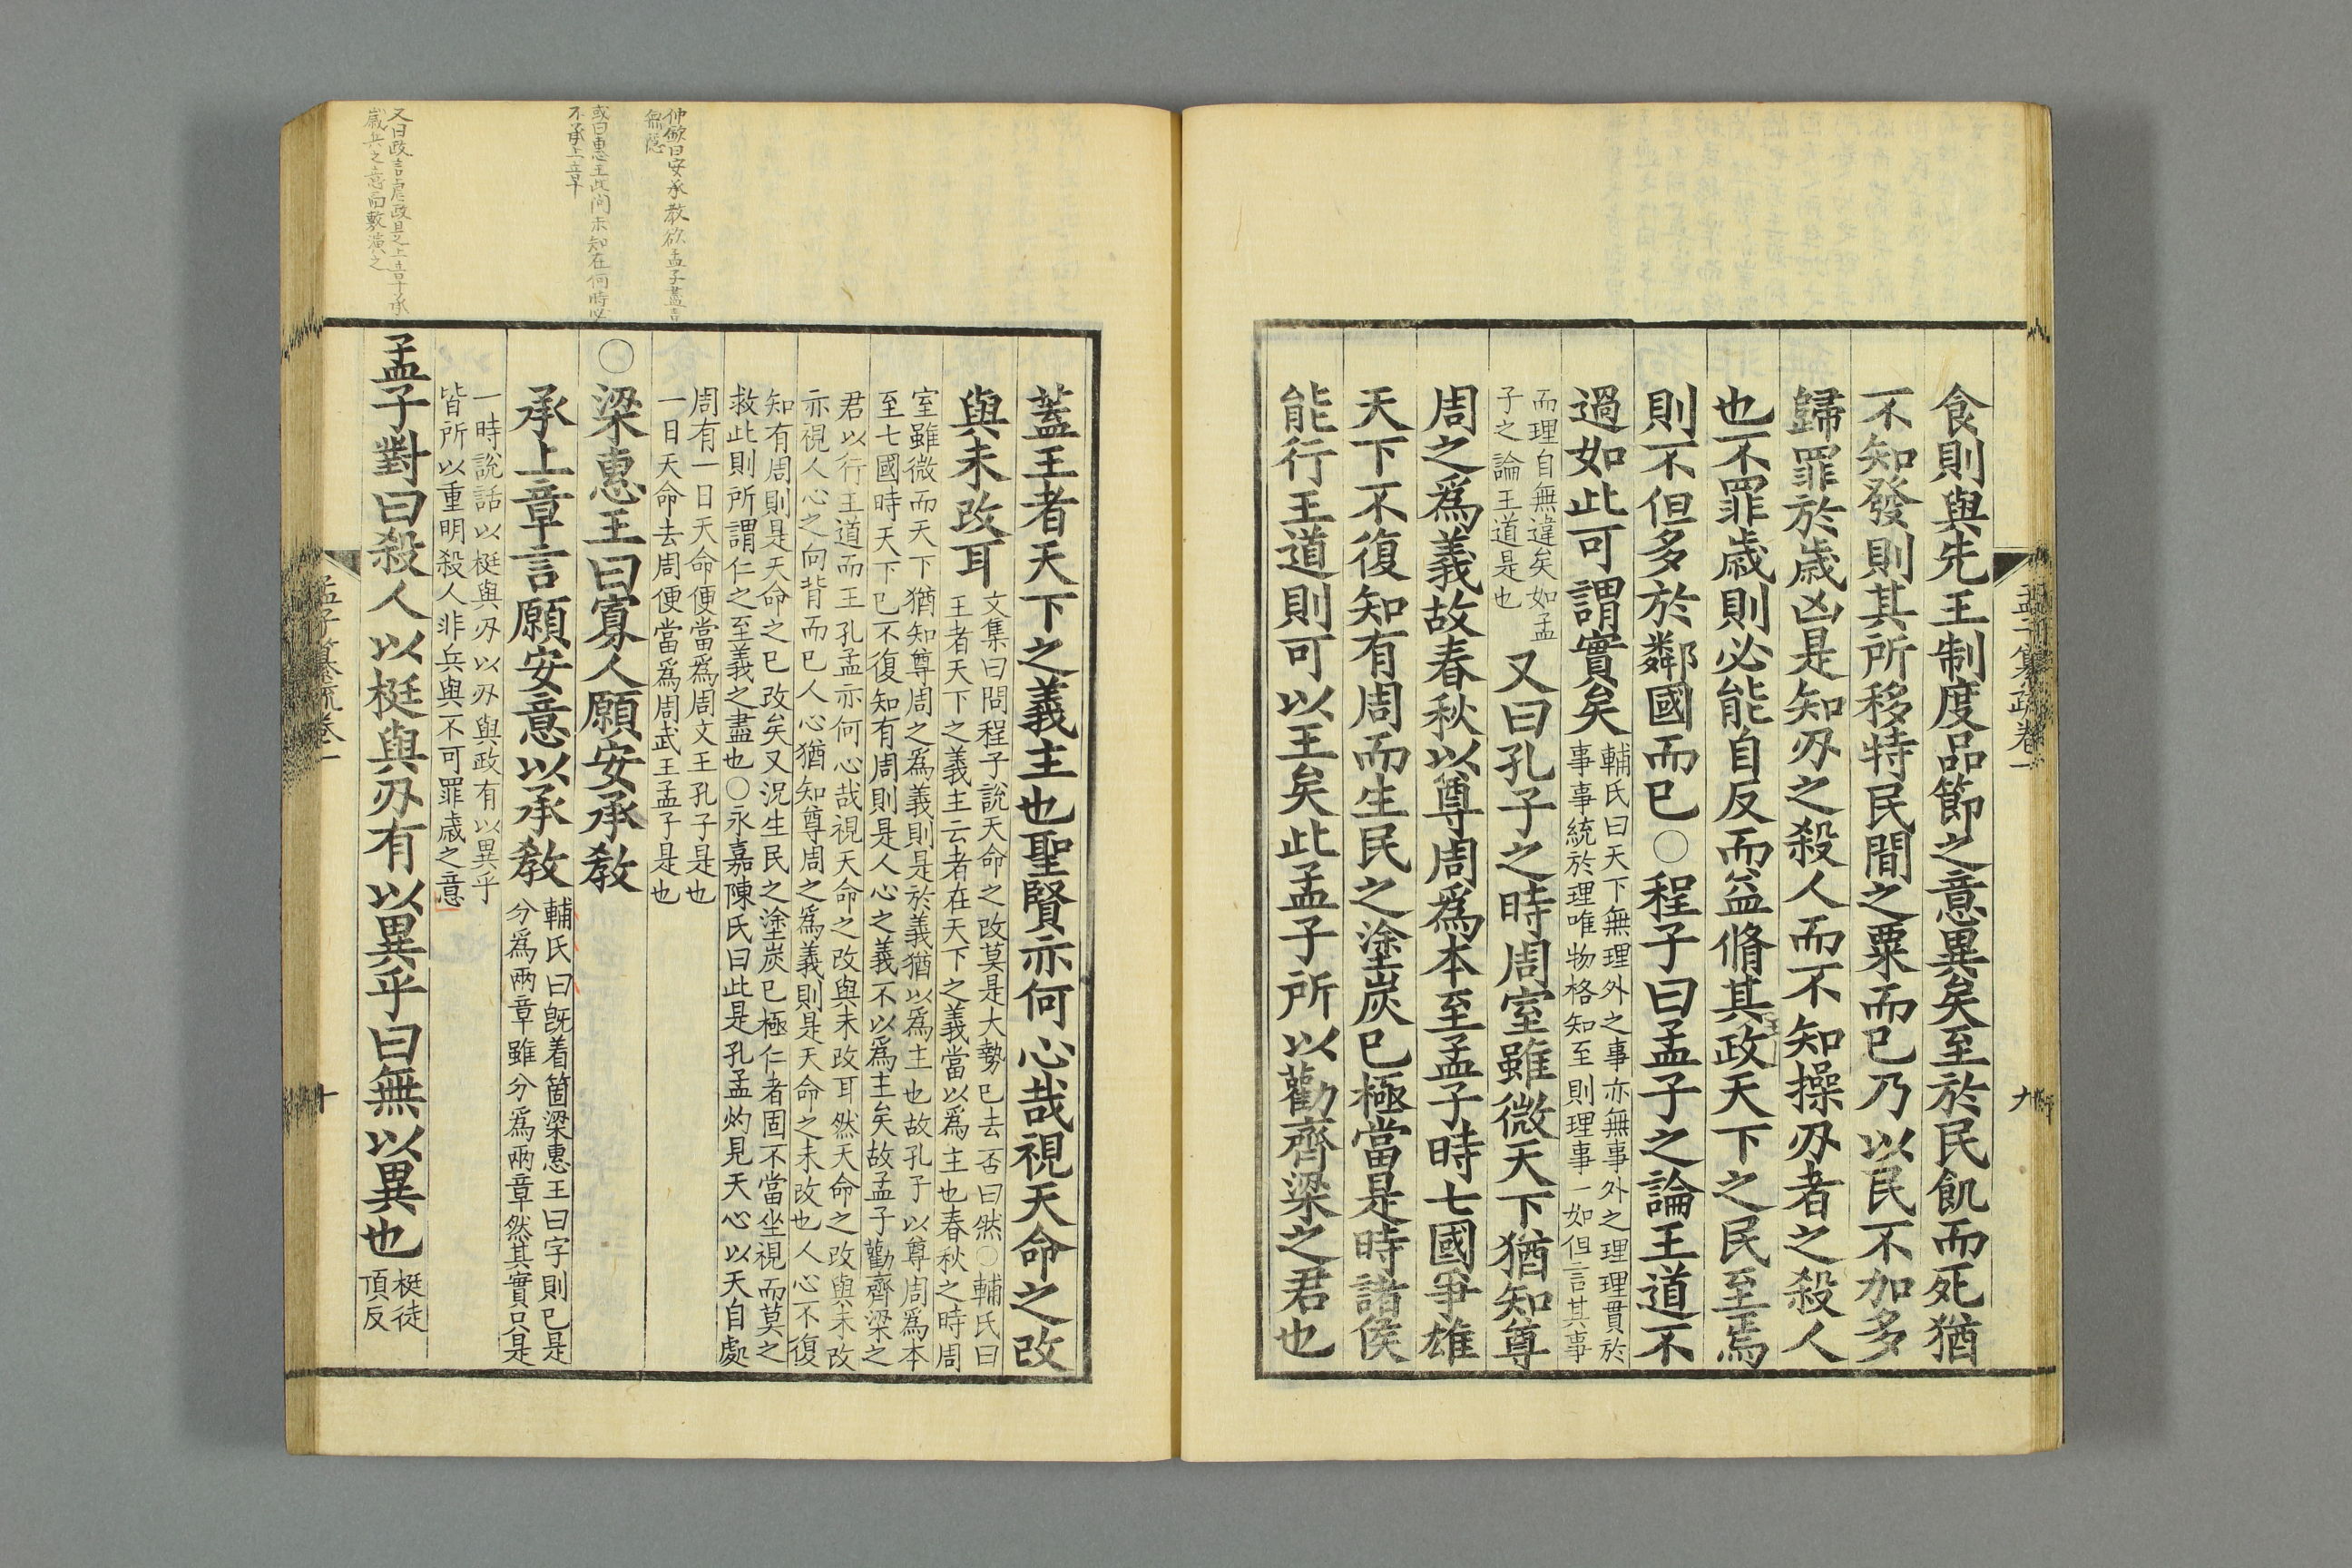 食則與先王制度品節之意異矣至於民飢而死猶
不知發則其所移特民間之粟而已乃以民不加多
歸罪於歳凶是知刃之殺人而不知操刃者之殺人
也不罪歳則必能自反而益脩其政天下之民至焉
則不但多於鄰國而已○程子曰孟子之論王道不
過如此可謂實矣
輔氏曰天下無理外之事亦無事外之理理貫於
事事統於理唯物格知至則理事一如但言其事
而理自無違矣如孟
子之論王道是也
又曰孔子之時周室雖微天下猶知尊
周之爲義故春秋以尊周爲本至孟子時七國爭雄
天下不復知有周而生民之塗炭已極當是時諸侯
能行王道則可以王矣此孟子所以勸齊梁之君也
孟子纂疏卷一
九
蓋王者天下之義主也聖賢亦何心哉視天命之改
與未改耳
文集曰問程子說天命之改莫是大勢已去否曰然○輔氏曰
王者天下之義主云者在天下之義當以爲主也春秋之時周
室雖微而天下猶知尊周之爲義則是於義猶以爲主也故孔子以尊周爲本
至七國時天下已不復知有周則是人心之義不以爲主矣故孟子勸齊梁之
君以行王道而王孔孟亦何心哉視天命之改與未改耳然天命之改與未改
亦視人心之向背而已人心猶知尊周之爲義則是天命之未改也人心不復
知有周則是天命之已改矣又況生民之塗炭已極仁者固不當坐視而莫之
救此則所謂仁之至義之盡也○永嘉陳氏曰此是孔孟灼見天心以天自處
周有一日天命便當爲周文王孔子是也
一日天命去周便當爲周武王孟子是也
○梁惠王曰寡人願安承教
承上章言願安意以承教
輔氏曰旣着箇梁惠王曰字則已是
分爲兩章雖分爲兩章然其實只是
一時說話以梃與刃以刃與政有以異乎
皆所以重明殺人非兵與不可罪歳之意
孟子對曰殺人以梃與刃有以異乎曰無以異也
梃徒
頂反
孟子纂疏卷一
十
仲欽曰安承教欲孟子盡言
無隱
或曰惠王此問未知在何時必
不承上章
又曰政言虐政且之上章承
歳兵之意而敷演之